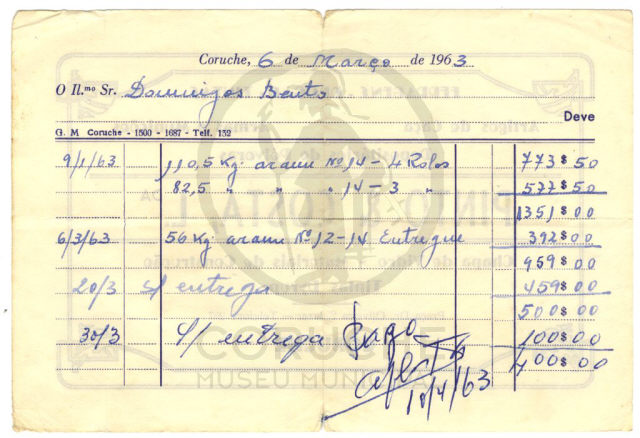 Coruche, 6 de Março de 1963
O Il.mo Sr. Domingos Bento
Deve
G. M Coruche - 1500 - 1687 - Telf. 152
9/1/63 110,5 Kg. arame Nº 14 - 4 Rolos 773$50
82,5 " " " 14 - 3 " 577$50
1351$00
6/3/63 56 Kg. arame Nº 12-14 Entregue 392$00
959$00
20/3 s/ entrega 459$00
500$00
30/3 S/ entrega 100$00
400$00
Pago
10/4/63
CORUCHE
MUSEU MUNICIPAL